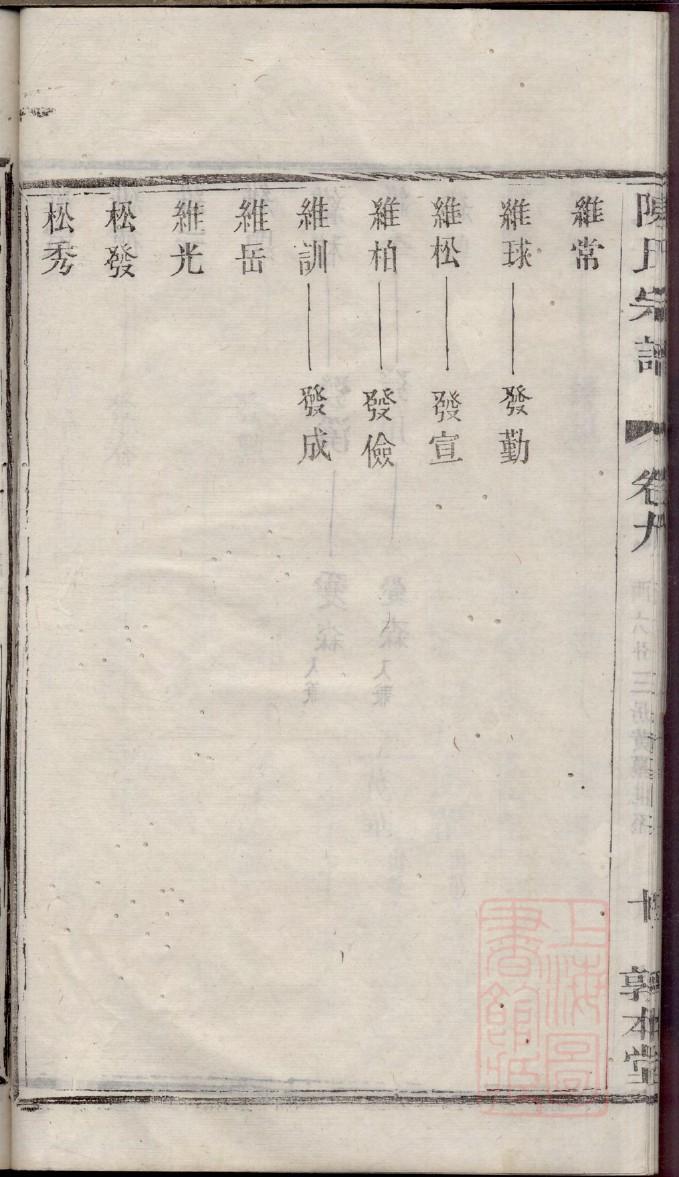 陳氏宗譜 卷九 十 敦本堂
維常
維球——發勤
維松——發宣
維柏——發儉
維訓——發成
維岳
維光
松發
松秀
上海圖書館藏